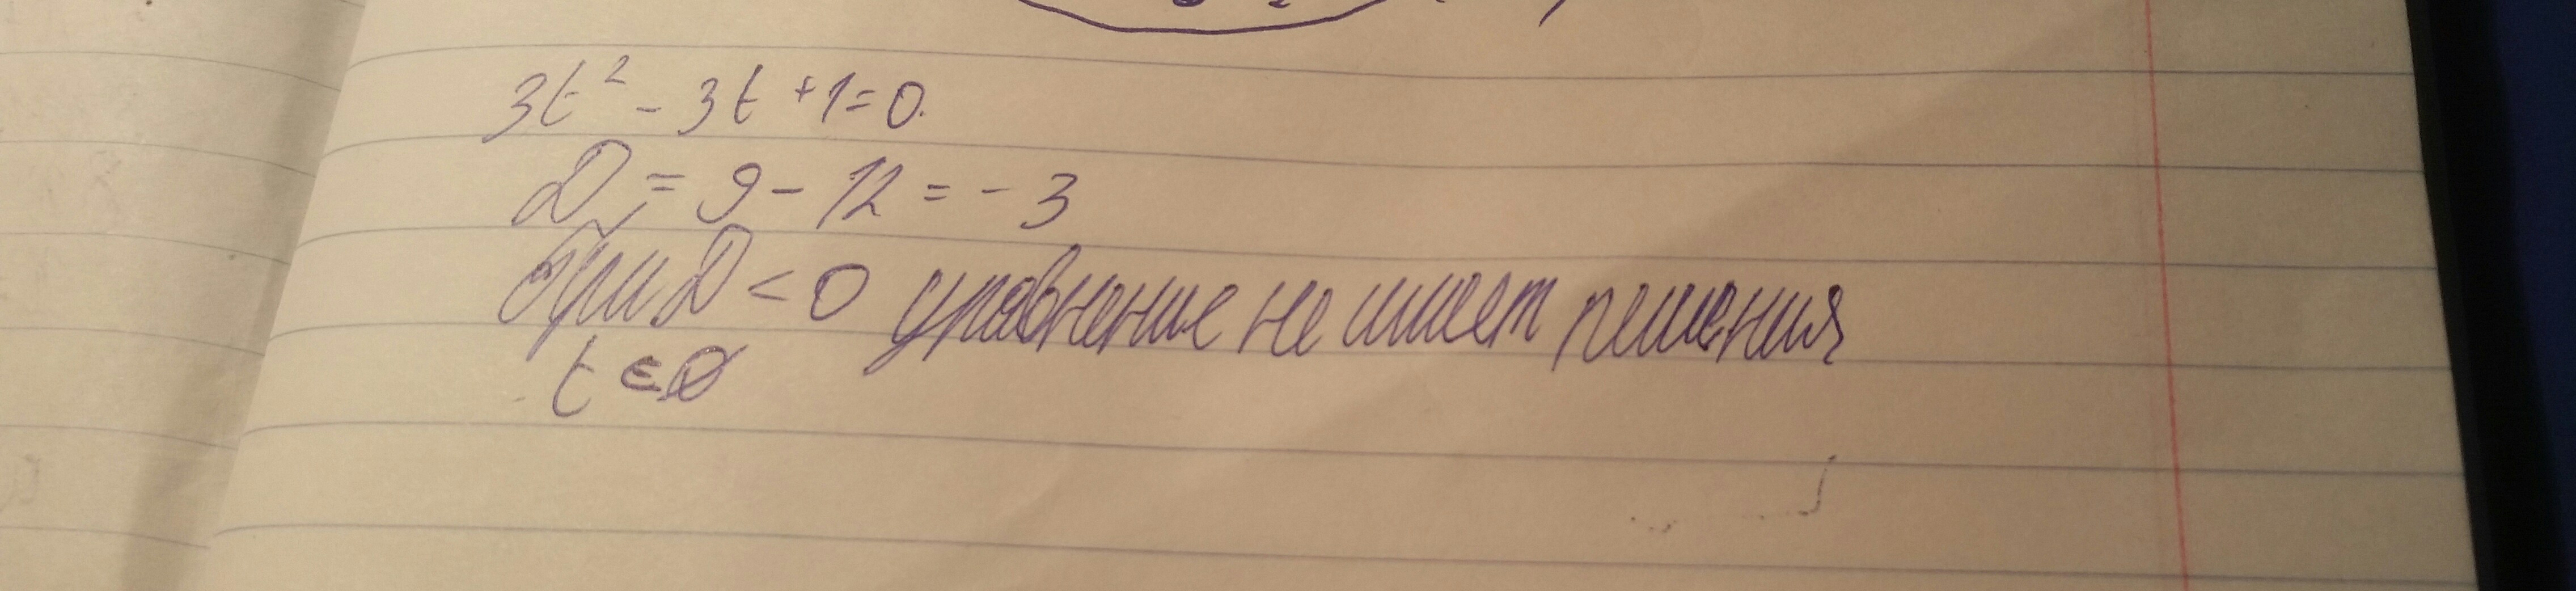 3t² - 3t + 1 = 0.
D = 9 - 12 = -3
При D < 0 уравнение не имеет решения
t ∈ ∅